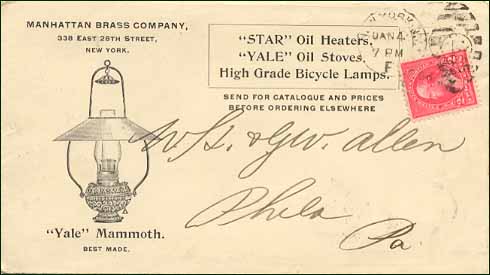 MANHATTAN BRASS COMPANY,
338 EAST 28TH STREET,
NEW YORK.
"STAR" Oil Heaters,
"YALE" Oil Stoves,
High Grade Bicycle Lamps.
SEND FOR CATALOGUE AND PRICES
BEFORE ORDERING ELSEWHERE
JAN 4
7 PM
& GW. Allen
Phila
Pa.
"Yale" Mammoth.
BEST MADE.